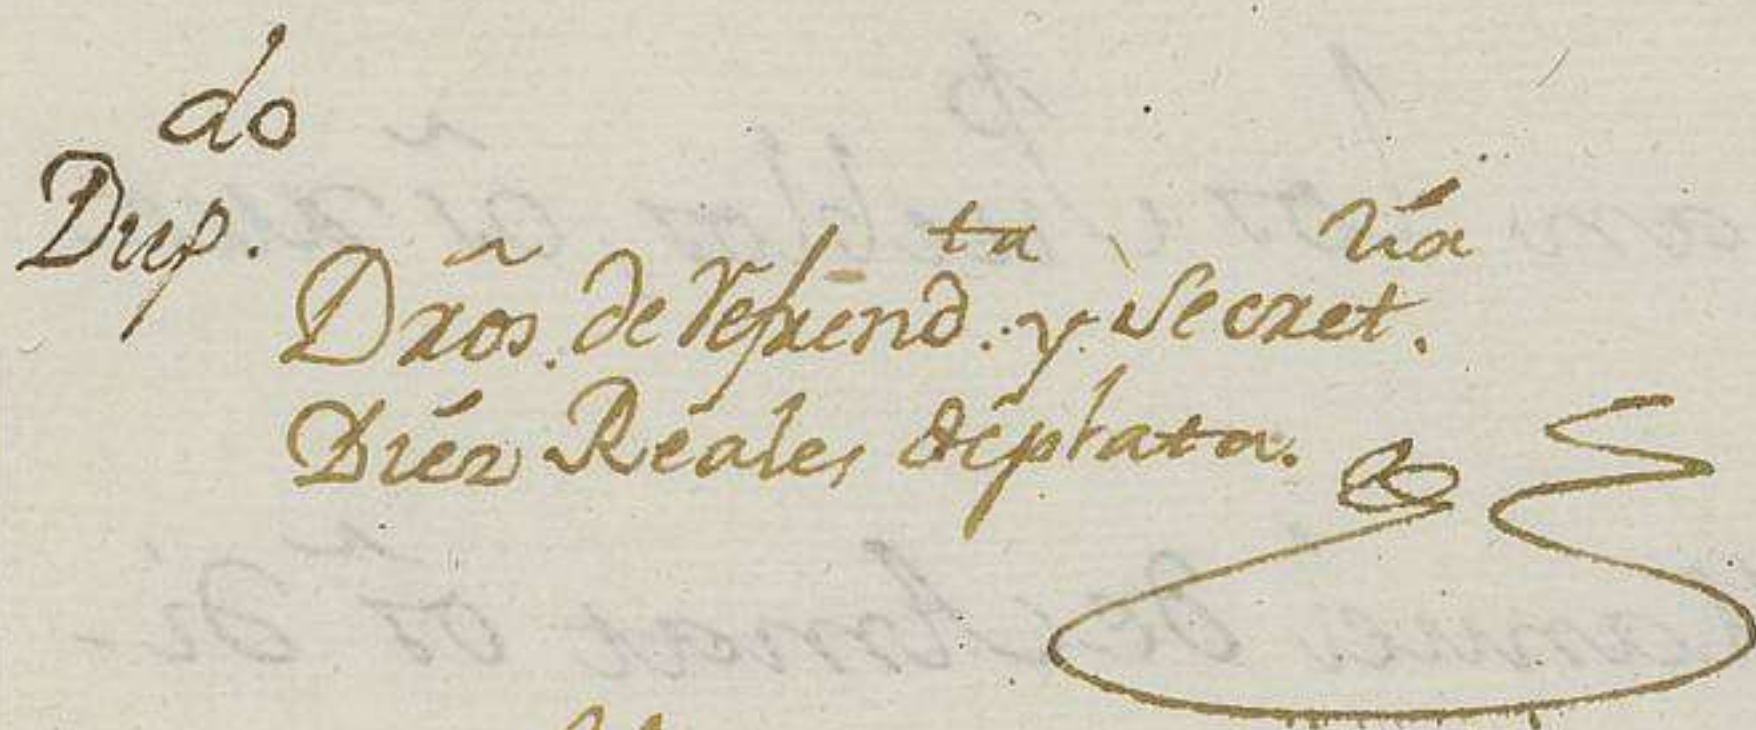 Dup.do
Dr̃os. de refrend.ta y Secret.ría
Diéz Reales de plata.